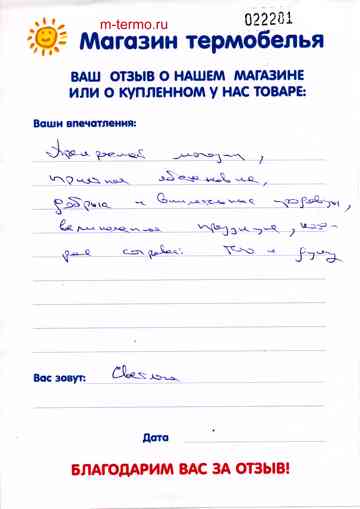 m-termo.ru
022281
Магазин термобелья
ВАШ ОТЗЫВ О НАШЕМ МАГАЗИНЕ
ИЛИ О КУПЛЕННОМ У НАС ТОВАРЕ:
Ваши впечатления:
Прекрасный магазин,
приятная обстановка,
добрые и внимательные продавцы,
великолепная продукция, кото-
рая согревает тело и душу
Вас зовут: Светлана
Дата
БЛАГОДАРИМ ВАС ЗА ОТЗЫВ!